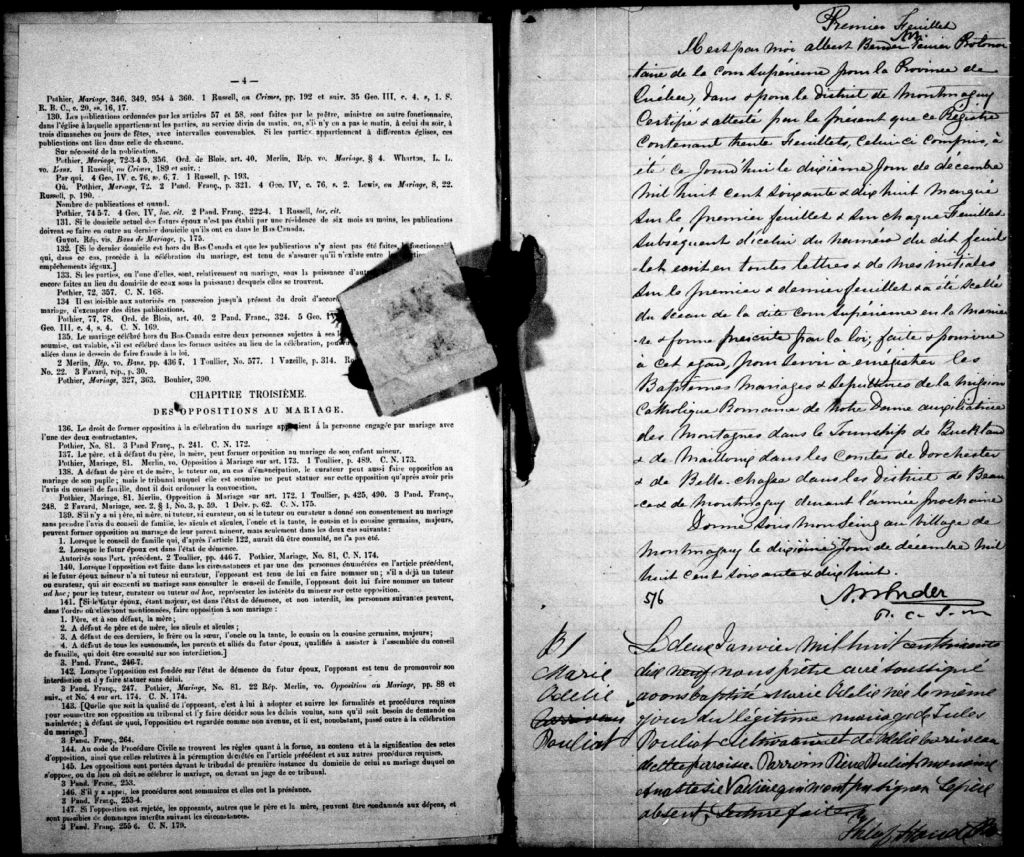 — 4 —
Pothier, Mariage, 346, 349, 954 à 360. 1 Russell, on Crimes, pp. 192 et suiv. 35 Geo. III, c. 4. s, 1. S.
R. B. C., c. 20, ss. 16, 17.
130. Les publications ordonnées par les articles 57 et 58, sont faites par le prêtre, ministre ou autre fonctionnaire,
dans l'église à laquelle appartiennent les parties, au service divin du matin, ou, s'il n'y en a pas le matin, à celui du soir, à
trois dimanches ou jours de fêtes, avec intervalles convenables. Si les parties appartiennent à différentes églises, ces
publications ont lieu dans celle de chacune.
Sur nécessité de la publication.
Pothier, Mariage, 72-3-4 5, 356. Ord. de Blois, art. 40. Merlin, Rép. vo. Mariage, § 4. Wharton, L. L.
vo. Bans. 1 Russell, on Crimes, 189 et suiv.:
Par qui. 4 Geo. IV. c. 76, ss. 6, 7. 1 Russell, p. 193.
Où. Pothier, Mariage, 72. 2 Pand. Franç., p. 321. 4 Geo. IV, c. 76, s. 2. Lewis, on Mariage, 8, 22.
Russell, p. 190.
Nombre de publications et quand.
Pothier, 74 5-7. 4 Geo. IV, loc. cit. 2 Pand. Franç. 222-4. 1 Russell, loc. cit.
131. Si le domicile actuel des futurs époux n'est pas établi par une résidence de six mois au moins, les publications
doivent se faire en outre au dernier domicile qu'ils ont eu dans le Bas Canada.
Guyot. Rép. vis. Bans de Mariage, p. 175.
132. [Si le dernier domicile est hors du Bas-Canada et que les publications n'y aient pas été faites, fonctionn
qui, dans ce cas, procède à la célébration du mariage, est tenu de s'assurer qu'il n'existe entre les parti
empêchements légaux.]
133. Si les parties, ou l'une d'elles, sont, relativement au mariage, sous la puissance d'aut
encore faites au lieu du domicile de ceux sous la puissance desquels elles se trouvent.
Pothier, 72, 357. C. N. 168.
134 Il est loisible aux autorités en possession jusqu'à présent du droit d'accor
mariage, d'exempter des dites publications.
Pothier, 77, 78. Ord. de Blois, art. 40. 2 Pand. Franç., 324. 5 Geo. IV
Geo. III, c. 4, s. 4. C. N. 169.
135. Le mariage célébré hors du Bas-Canada entre deux personnes sujettes à ses
soumise, est valable, s'il est célébré dans les formes usitées au lieu de la célébration, pourv
allées dans le dessein de faire fraude à la loi.
2 Merlin, Rép. vo. Bans, pp. 436 7. 1 Toullier, No. 577. 1 Vazeille, p. 314. Ro
No. 22. 3 Favard, rép., p. 30.
Pothier, Mariage, 327, 363. Bouhier, 390.
CHAPITRE TROISIÈME.
DES OPPOSITIONS AU MARIAGE.
136. Le droit de former opposition à la célébration du mariage appartient à la personne engagée par mariage avec
l'une des deux contractantes.
Pothier, No. 81. 3 Pand Franç., p. 241. C. N. 172.
137. Le père, et à défaut du père, la mère, peut former opposition au mariage de son enfant mineur.
Pothier, Mariage, 81. Merlin, vo. Opposition à Mariage sur art. 173. 1 Toullier, p. 489. C. N. 173.
138. A défaut de père et de mère, le tuteur ou, au cas d'émancipation, le curateur peut aussi faire opposition au
mariage de son pupile; mais le tribunal auquel elle est soumise ne peut statuer sur cette opposition qu'après avoir pris
l'avis du conseil de famille, dont il doit ordonner la convocation.
Pothier, Mariage, 81. Merlin, Opposition à Mariage sur art. 172. 1 Toullier, p. 425, 490. 3 Pand. Franç.,
248. 2 Favard, Mariage, sec. 2, § 1, No. 3, p. 59. 1 Delv. p. 62. C. N. 175.
139. S'il n'y a ni père, ni mère, ni tuteur, ni curateur, ou si le tuteur ou curateur a donné son consentement au mariage
sans prendre l'avis du conseil de famille, les aïeuls et aïeules, l'oncle et la tante, le cousin et la cousine germains, majeurs,
peuvent former opposition au mariage de leur parent mineur, mais seulement dans les deux cas suivants:
1. Lorsque le conseil de famille qui, d'après l'article 122, aurait dû être consulté, ne l'a pas été.
2. Lorsque le futur époux est dans l'état de démence.
Autorités sous l'art. précédent. 2 Toullier, pp. 446 7. Pothier, Mariage, No. 81, C. N. 174.
140. Lorsque l'opposition est faite dans les circonstances et par une des personnes énumérées en l'article précédent,
si le futur époux mineur n'a ni tuteur ni curateur, l'opposant est tenu de lui en faire nommer un; s'il a déjà un tuteur
ou curateur, qui ait consenti au mariage sans consulter le conseil de famille, l'opposant doit lui faire nommer un tuteur
ad hoc; pour les tuteur, curateur ou tuteur ad hoc, représenter les intérêts du mineur sur cette opposition.
141. [Si le futur époux, étant majeur, est dans l'état de démence, et non interdit, les personnes suivantes peuvent,
dans l'ordre où elles sont mentionnées, faire opposition à son mariage:
1. Père, et à son défaut, la mère;
2. A défaut de père et de mère, les aïeuls et aïeules;
3. A défaut de ces derniers, le frère ou la sœur, l'oncle ou la tante, le cousin ou la cousine germains, majeurs;
4. A défaut de tous les susnommés, les parents et alliés du futur époux, qualifiés à assister à l'assemblée du conseil
de famille, qui doit être consulté sur son interdiction.]
3. Pand. Franç., 246-7.
142. Lorsque l'opposition est fondée sur l'état de démence du futur époux, l'opposant est tenu de promouvoir son
interdiction et d'y faire statuer sans délai.
3 Pand. Franç., 247. Pothier, Mariage, No. 81. 22 Rép. Merlin, vo. Opposition au Mariage, pp. 88 et
suiv., et No. 4 sur art. 174. C. N. 174.
143. [Quelle que soit la qualité de l'opposant, c'est à lui à adopter et suivre les formalités et procédures requises
pour soumettre son opposition au tribunal et l'y faire décider sous les délais voulus, sans qu'il soit besoin de demande en
mainlevée; à défaut de quoi, l'opposition est regardée comme non avenue, et il est, nonobstant, passé outre à la célébration
du mariage.]
3 Pand. Franç., 264.
144. Au code de Procédure Civile se trouvent les règles quant à la forme, au contenu et à la signification des actes
d'opposition, ainsi que celles relatives à la péremption décrétée en l'article précédent et aux autres procédures requises.
145. Les oppositions sont portées devant le tribunal de première instance du domicile de celui au mariage duquel on
s'oppose, ou du lieu où doit se célébrer le mariage, ou devant un juge de ce tribunal.
3 Pand. Franc., 253.
146. S'il y a appel, les procédures sont sommaires et elles ont la préséance.
3 Pand. Franç., 253-4.
147. Si l'opposition est rejetée, les opposants, autres que le père et la mère, peuvent être condamnés aux dépens, et
sont possibles de dommages intérêts suivant les circonstances.
3 Pand. Franç. 255 6. C. N. 179.
Premier Feuillet
M est par moi albert Bender Junior Protono
taire de la cour Supérieure pour la Province de
Québec, dans & pour le district de Montmagny
Certifié & attesté par le présent que ce Registre
Contenant trente Feuillets, celui-ci compris, a
été ce Jourd'hui le dixième Jour de décembre
Mil huit cent soixante & dix huit Marqué
Sur le premier feuillet & sur chaque Feuillet
Subséquent d'icelui du numero du dit feuil
let écrit en toutes lettres & de mes initiales
Sur le premier & dernier feuillet & a été scellé
du sceau de la dite cour Supérieure en la maniè
re & forme prescrite par la loi, faite & pourvue
à cet égard, pour servir à enrégistrer les
Baptêmes Mariages & Sépultures de la Mission
Catholique Romaine de Notre Dame auxiliatrice
des Montagnes dans le Township de Buckland
& de Mailloux dans les Comtés de Dorchester
& de Belle-chasse dans les District de Beau
ce & de Montmagny durant l'année prochaine
Donné Sous Mon Seing au Village de
Montmagny le dixième Jour de décembre Mil
huit cent soixante & dix huit.
576
A Bender
P. C. S. M
B 1
Marie
Odélie
Pouliot
Le deux Janvier Mil huit cent soixante
dix neuf nous prêtre curé soussigné
avons baptisé Marie Odélie née le même
jour du légitime mariage de Jules
Pouliot cultivateur et de Odélie Corriveau
de cette paroisse. Parrain Pierre Pouliot marraine
Anastasie qui n'ont pu signer. Le père
absent. Lecture faite.